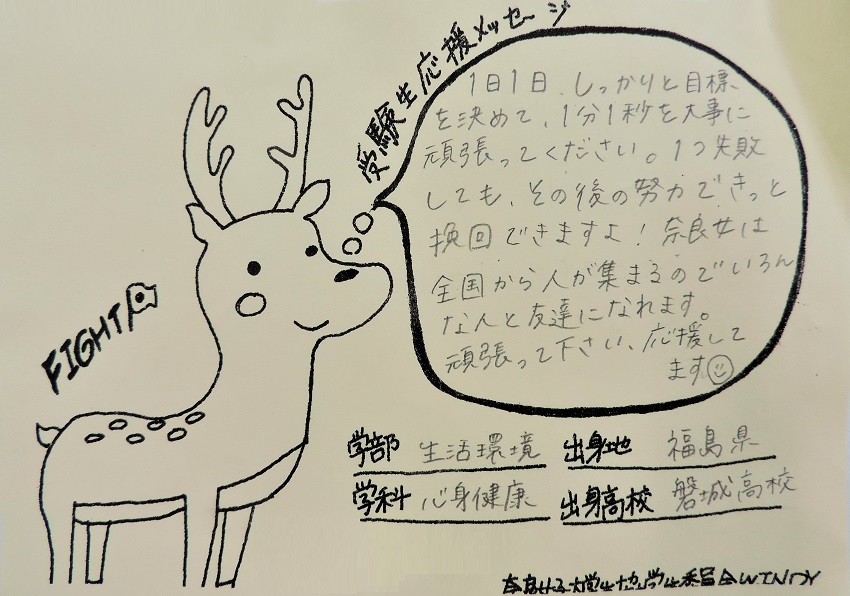 受験生応援メッセージ
1日1日、しっかりと目標
を決めて、1分1秒を大事に
頑張ってください。1つ失敗
しても、その後の努力できっと
挽回できますよ！奈良女は
全国から人が集まるのでいろん
な人と友達になれます。
頑張って下さい、応援して
ます
FIGHT
学部 生活環境 出身地 福島県
学科 心身健康 出身高校 磐城高校
奈良女子大学生協学生委員会WINDY